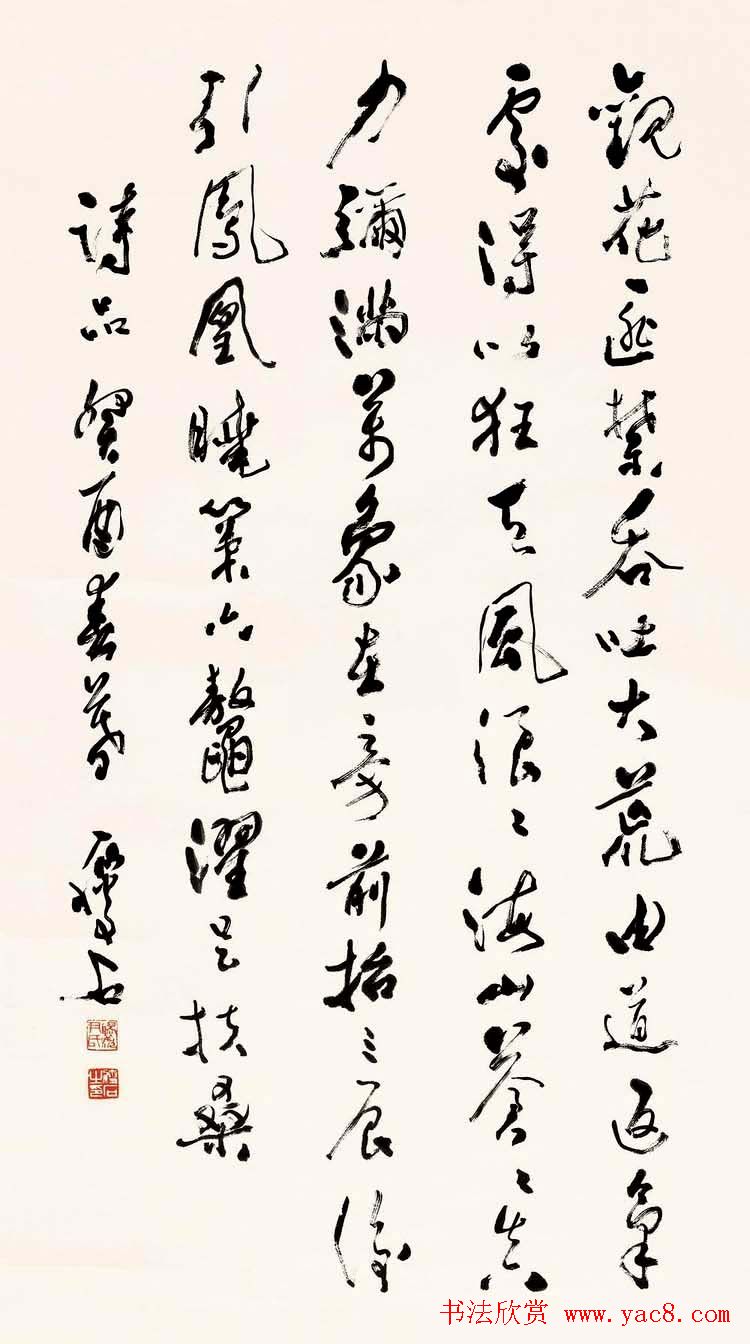 觀花匪禁吞吐大荒由道返氣
處得以狂天風浪〻海山蒼〻真
力彌滿萬象在旁前招三辰後
引鳳凰曉策六鼇濯足扶桑
詩品 癸酉春暮 瘦石
书法欣赏 www.yac8.com